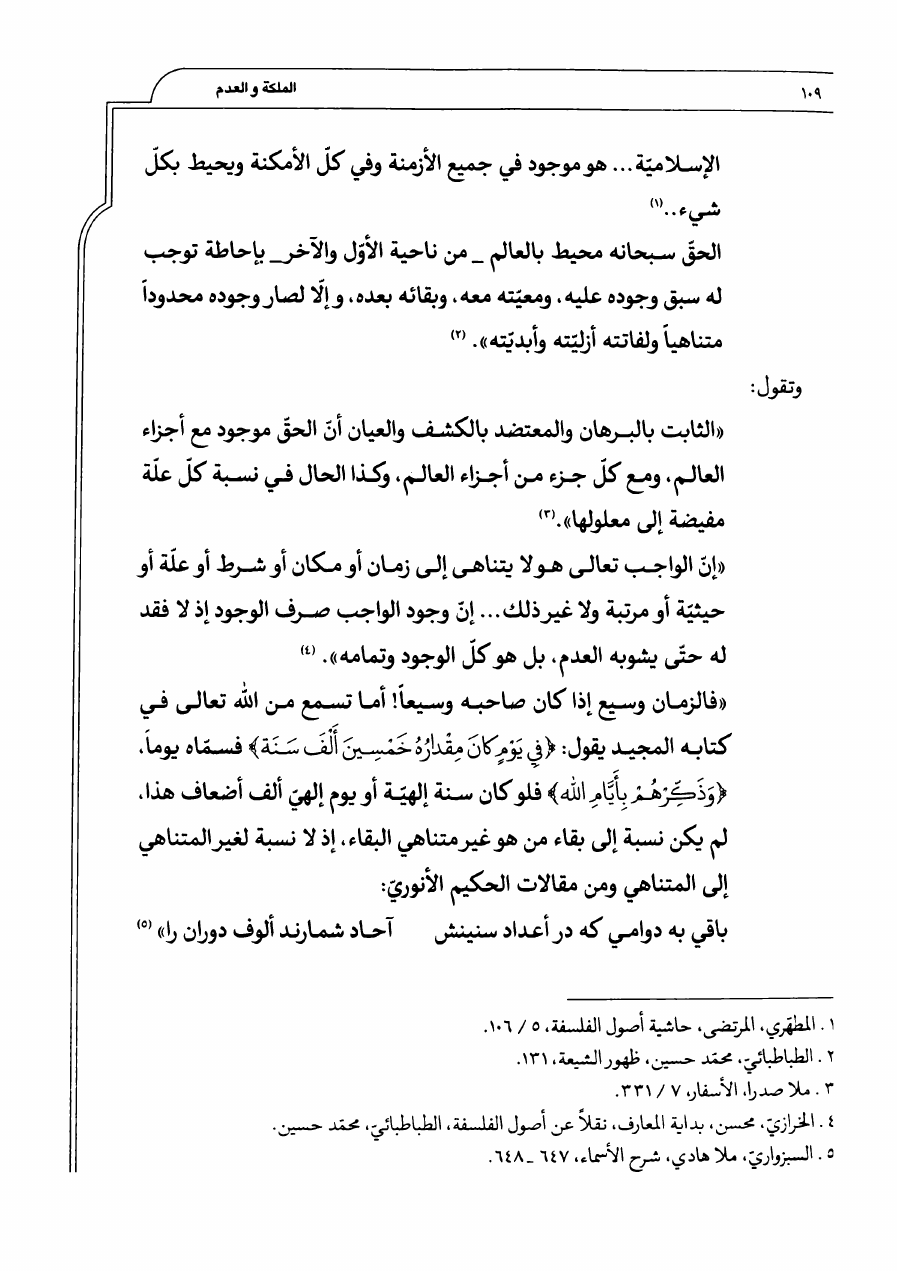 ١٠٩
الملكة و العدم
الإسـلاميّة... هو موجود في جميع الأزمنة وفي كلّ الأمكنة ويحيط بكلّ
شيء..(١)
الحقّ سبحانه محيط بالعالم _ من ناحية الأوّل والآخر_ بإحاطة توجب
له سبق وجوده عليه، ومعيّته معه، وبقائه بعده، وإلّا لصار وجوده محدوداً
متناهياً ولفاتته أزليّته وأبديّته». (٢)
وتقول:
«الثابت بالبـرهان والمعتضد بالكشـف والعيان أنّ الحقّ موجود مع أجزاء
العالـم، ومـع كلّ جـزء مـن أجـزاء العالـم، وكـذا الحال فـي نسـبة كلّ علّة
مفيضة إلى معلولها».(٣)
«إنّ الواجـب تعالـى هـو لا يتناهـى إلـى زمـان أو مـكان أو شـرط أو علّة أو
حيثيّة أو مرتبة ولا غير ذلك... إنّ وجود الواجب صـرف الوجود إذ لا فقد
له حتّى يشوبه العدم، بل هو كلّ الوجود وتمامه». (٤)
«فالزمـان وسـيع إذا كان صاحبـه وسـيعاً! أمـا تسـمع مـن الله تعالـى فـي
كتابـه المجيـد يقول: ﴿فِي يَوْمٍ كَانَ مِقْدَارُهُ خَمْسِينَ أَلْفَ سَنَة﴾ فسـمّاه يوماً،
﴿وَذَكِّرْهُمْ بِأَيَّامِ الله﴾ فلو كان سـنة إلهيّـة أو يوم إلهيّ ألف أضعاف هذا،
لم يكن نسبة إلى بقاء من هو غير متناهي البقاء، إذ لا نسبة لغير المتناهي
إلى المتناهي ومن مقالات الحكيم الأنوريّ:
باقي به دوامي كه در أعداد سنينش آحـاد شمـارند ألوف دوران را» (٥)
١ . المطهّري، المرتضى، حاشية أصول الفلسفة، ٥ / ١٠٦.
٢ . الطباطبائيّ، محمّد حسين، ظهور الشيعة، ١٣١.
٣ . ملا صدرا، الأسفار، ٧ / ٣٣١.
٤ . الخرازيّ، محسن، بداية المعارف، نقلاً عن أصول الفلسفة، الطباطبائيّ، محمّد حسين.
٥ . السبزواريّ، ملا هادي، شرح الأسماء، ٦٤٧ _ ٦٤٨.